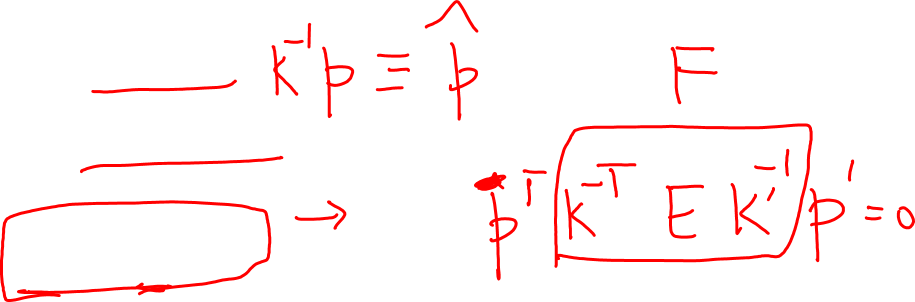 K⁻¹p ≡ p̂
F
pᵀ K⁻ᵀ E K'⁻¹ p' = 0